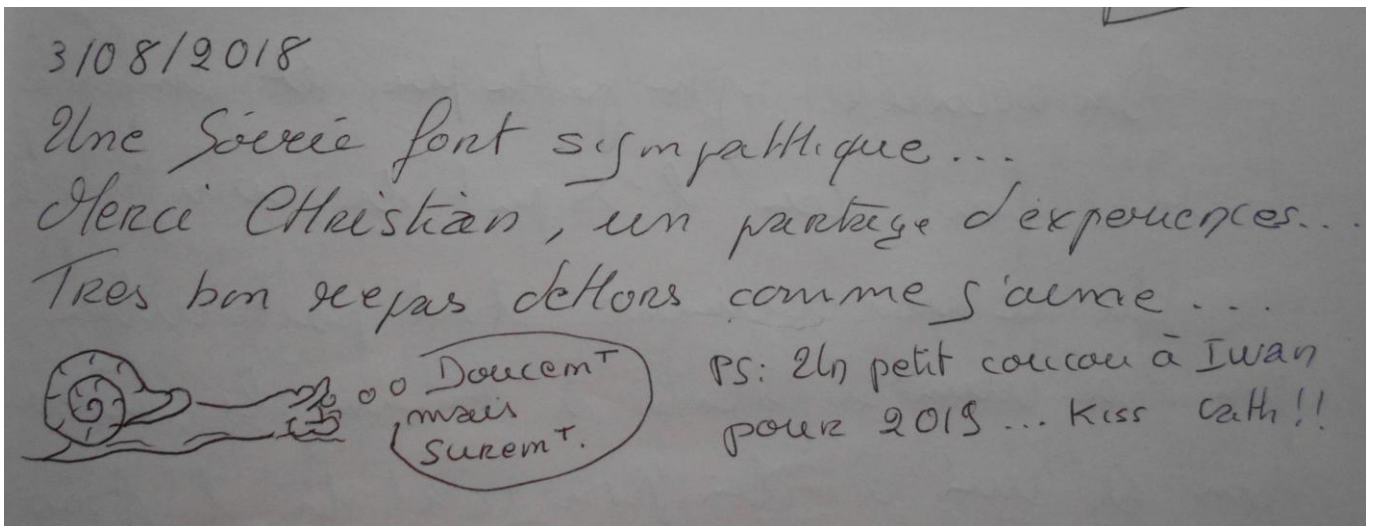 3/08/2018
Une Soirée fort sympathique...
Merci CHRistian, un partage d'experiences...
TRes bon repas deHors comme j'aime...
Doucemᵀ
mais
suremᵀ.
PS: Un petit coucou à Iwan
pour 2019... Kiss Cath!!